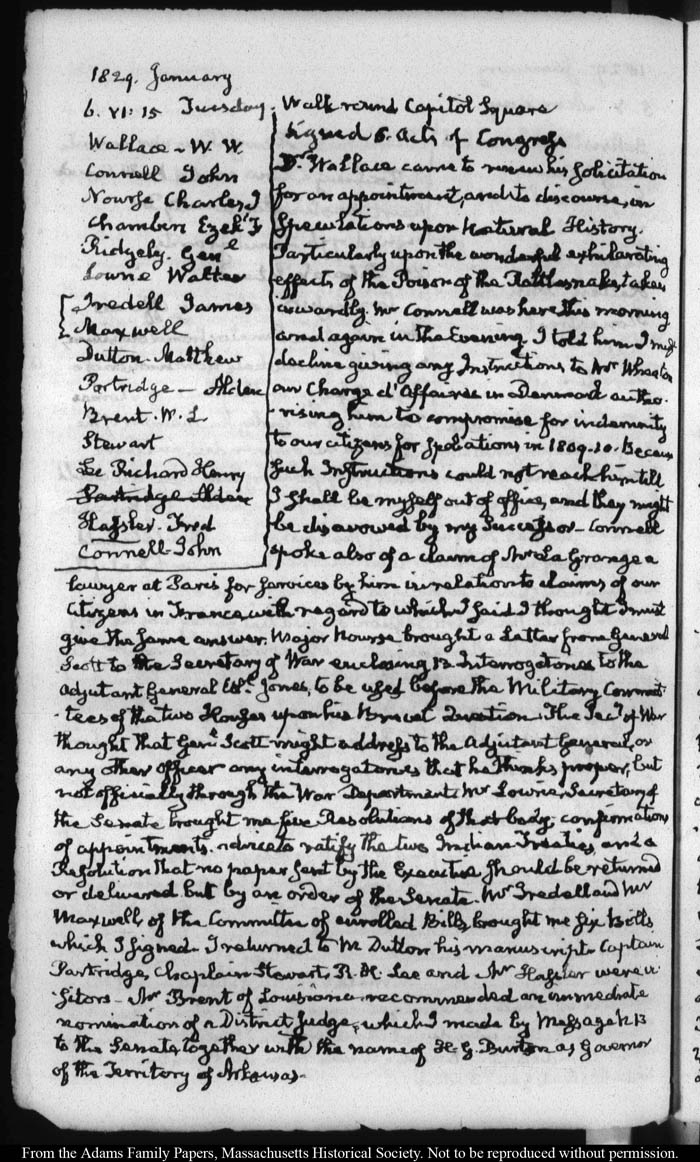 1829. January
6. VI:15 Tuesday. Walk round Capitol Square
Wallace - W. W.
Connell John
Nourse Charles J
Chambers Ezekl F
Ridgely. Genl
Lowrie Walter
Iredell James
Maxwell
Dutton. Matthew
Partridge - Alden
Brent. W. L
Stewart
Lee Richard Henry
Partridge Alden
Hassler. Ferd
Connell John
Signed 6. Acts of Congress
Dr. Wallace came to renew his solicitation
for an appointment, and to discourse, in
Speculations upon Natural History.
Particularly upon the wonderful exhilarating
effects of the Poison of the Rattlesnake, taken
inwardly. Mr Connell was here this morning
and again in the Evening. I told him I must
decline giving any Instructions to Mr Wheaton
our Chargé d'Affaires in Denmark autho-
-rising him to compromise for indemnity
to our citizens for spoliations in 1809.10. Because
such Instructions could not reach him till
I shall be myself out of office, and they might
be disavowed by my Successor - Connell
spoke also of a claim of Mr La Grange a
lawyer at Paris for services by him in relation to claims of our
Citizens in France, with regard to which I said I thought I must
give the same answer. Major Nourse brought a Letter from General
Scott to the Secretary of War enclosing 12. Interrogatories to the
Adjutant General Jones, to be used before the Military Commit-
-tees of the two Houses upon his Brevet Question. The Secy of War
thought that Genl Scott might address to the Adjutant General, or
any other Officer any interrogatories that he thinks proper, but
not officially through the War Department. Mr Lowrie, Secretary of
the Senate brought me five Resolutions of that body, confirmations
of appointments. advice to ratify the two Indian Treaties and a
Resolution that no paper sent by the Executive should be returned
or delivered but by an order of the Senate. Mr Iredell and Mr
Maxwell, of the Committee of enrolled Bills, brought me six Bills
which I signed. I returned to M. Dutton his manuscript. Captain
Partridge, Chaplain Stewart, R. H. Lee and Mr Hassler were vi-
-sitors - Mr Brent of Louisiana recommended an immediate
nomination of a District Judge, which I made by Message
to the Senate, together with the name of H. G. Burton as Governor
of the Territory of Arkansas.
From the Adams Family Papers, Massachusetts Historical Society. Not to be reproduced without permission.